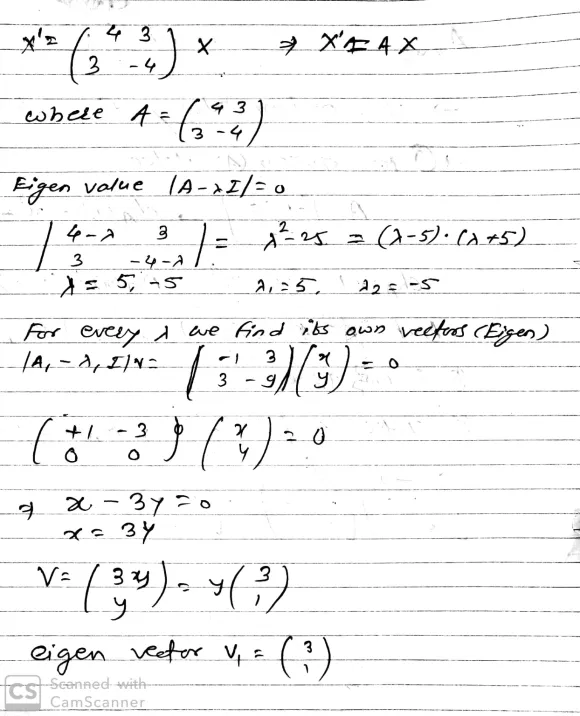 x' = ( 4 3 ) x ⇒ X' = A X
3 -4
where A = ( 4 3 )
3 -4
Eigen value |A-λI| = 0
| 4-λ 3 | = λ²-25 = (λ-5)·(λ+5)
3 -4-λ
λ = 5, -5 λ₁ = 5, λ₂ = -5
For every λ we find its own vectors (Eigen)
|A, - λ, I|v = ( -1 3 ) ( x ) = 0
3 -9 y
( +1 -3 ) ( x ) = 0
0 0 y
⇒ x - 3y = 0
x = 3y
V = ( 3y ) = y ( 3 )
y 1
eigen vector V₁ = ( 3 )
1
CS Scanned with
CamScanner